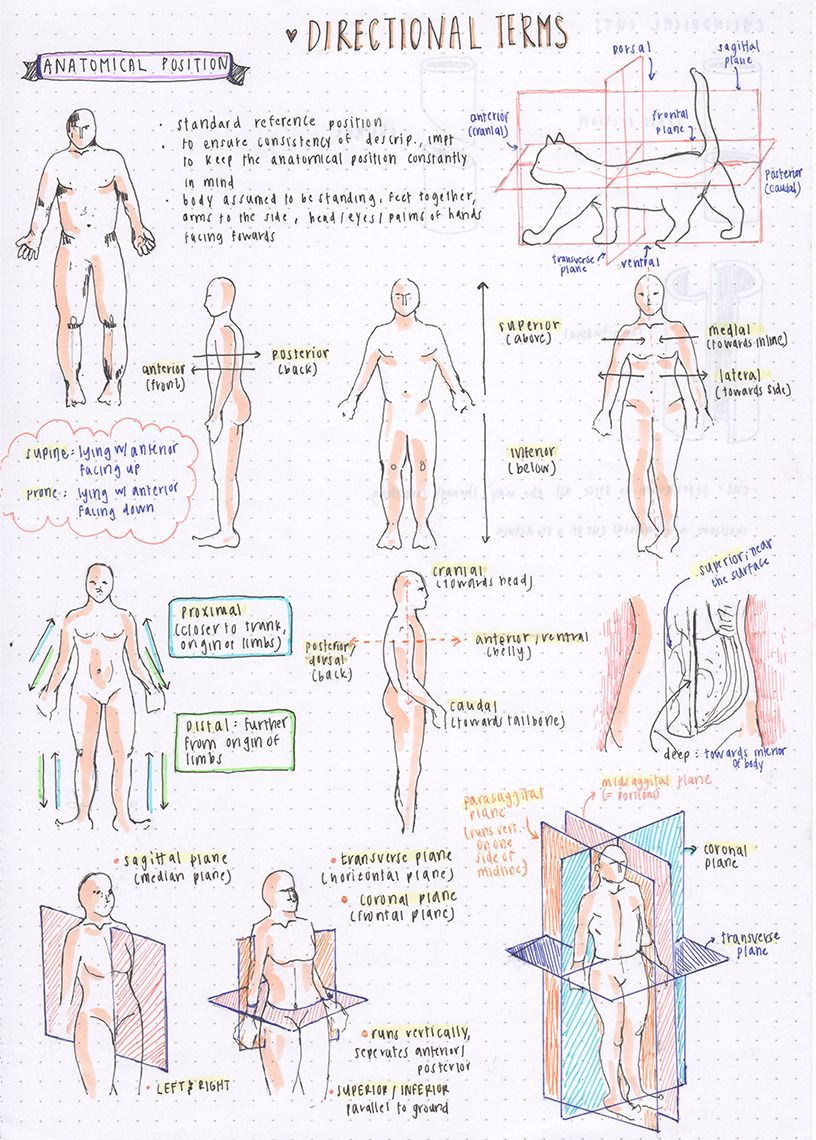 ♥ DIRECTIONAL TERMS
ANATOMICAL POSITION
• standard reference position
• to ensure consistency of descrip., impt
to keep the anatomical position constantly
in mind
• body assumed to be standing, feet together,
arms to the side, head/eyes/palms of hands
facing forwards
dorsal
sagittal
plane
anterior
(cranial)
frontal
plane
posterior
(caudal)
transverse
plane
ventral
anterior
(front)
posterior
(back)
superior
(above)
inferior
(below)
medial
(towards inline)
lateral
(towards side)
supine: lying w/ anterior
facing up
prone: lying w/ anterior
facing down
proximal
(closer to trunk,
origin of limbs)
Distal: further
from origin of
limbs
cranial
(towards head)
posterior/
dorsal
(back)
anterior/ventral
(belly)
caudal
(towards tailbone)
superior; near
the surface
deep: towards interior
of body
parasaggital
plane
(runs vert.
on one
side of
midline)
midsaggital plane
(= portions)
coronal
plane
transverse
plane
• sagittal plane
(median plane)
• LEFT & RIGHT
• transverse plane
(horizontal plane)
• coronal plane
(frontal plane)
• runs vertically,
seperates anterior/
posterior
• SUPERIOR/INFERIOR
parallel to ground